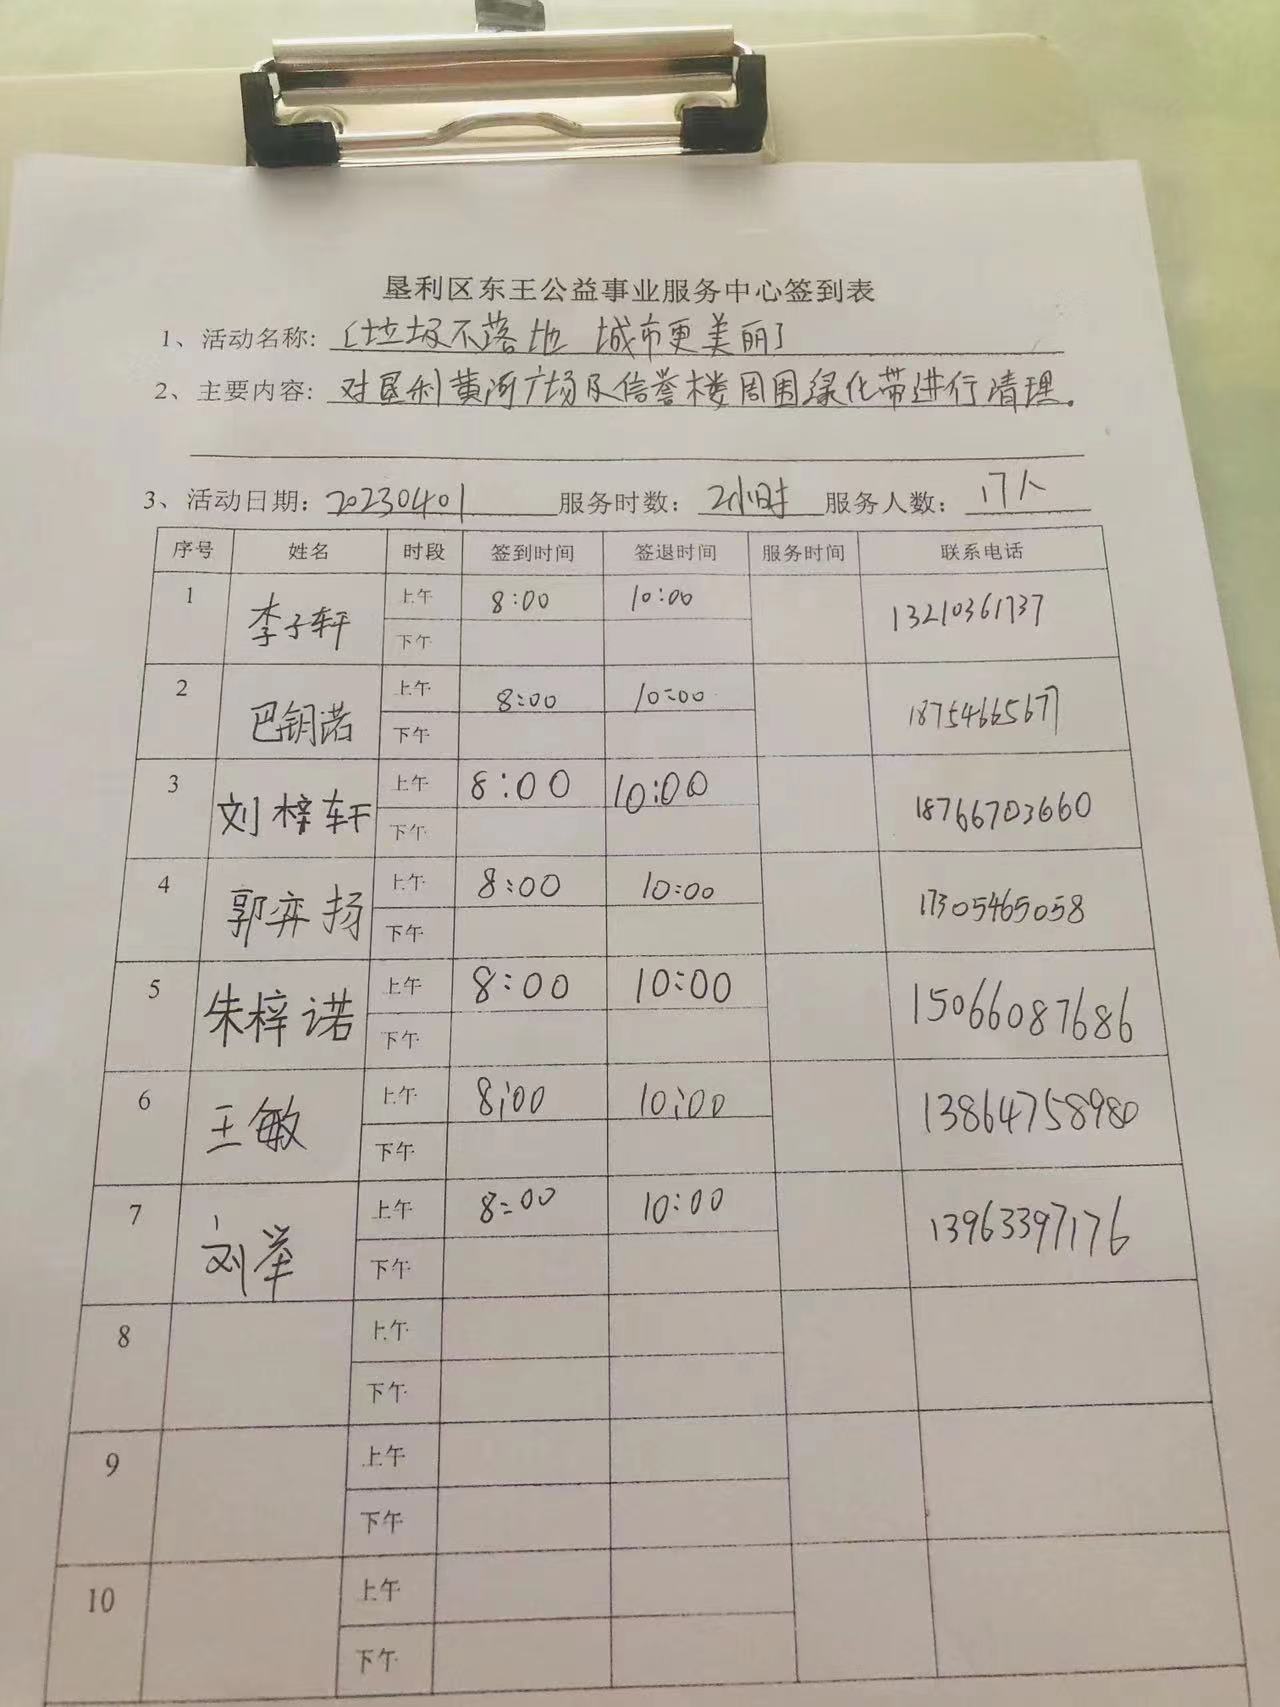 垦利区东王公益事业服务中心签到表
1、活动名称:〔垃圾不落地 城市更美丽〕
2、主要内容:对垦利黄河广场及信誉楼周围绿化带进行清理。
3、活动日期:20230401 服务时数:2小时 服务人数:17人
序号 姓名 时段 签到时间 签退时间 服务时间 联系电话
1 李子轩 上午 8:00 10:00 13210361737
下午
2 巴钥诺 上午 8:00 10:00 18754665677
下午
3 刘梓轩 上午 8:00 10:00 18766703660
下午
4 郭弈扬 上午 8:00 10:00 17305465058
下午
5 朱梓诺 上午 8:00 10:00 15066087686
下午
6 王敏 上午 8:00 10:00 13864758980
下午
7 刘举 上午 8:00 10:00 13963397176
下午
8 上午
下午
9 上午
下午
10 上午
下午